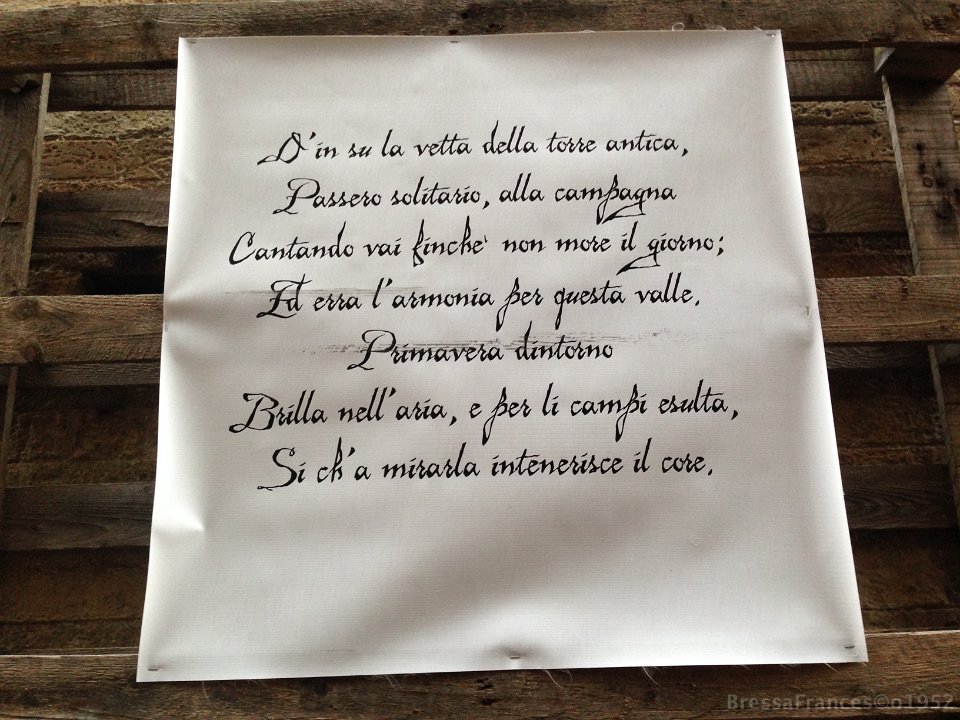 D'in su la vetta della torre antica,
Passero solitario, alla campagna
Cantando vai finche' non more il giorno;
Ed erra l'armonia per questa valle.
Primavera dintorno
Brilla nell'aria, e per li campi esulta,
Si ch'a mirarla intenerisce il core.
BressaFrances©o1952